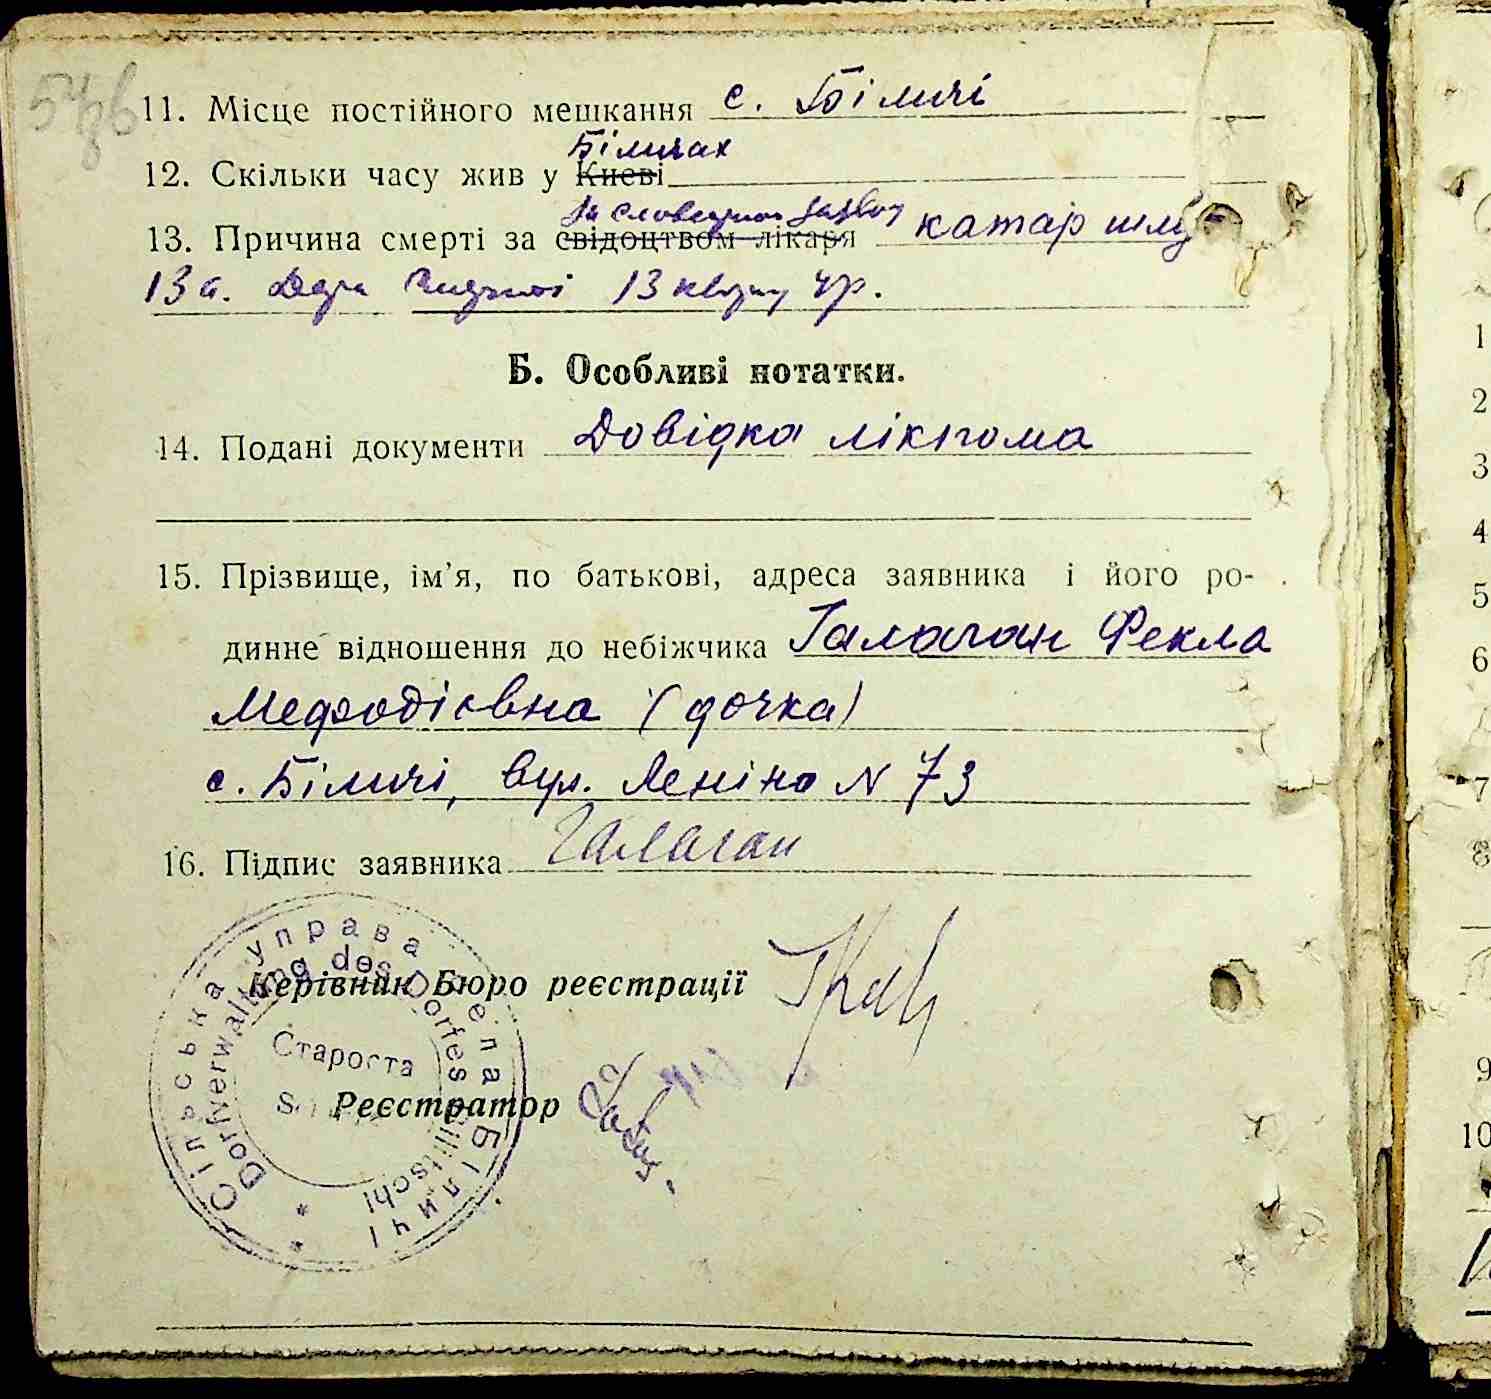 54зв
11. Місце постійного мешкання с. Біличі
Біличах
12. Скільки часу жив у Києві
за словесною заявою
13. Причина смерті за свідоцтвом лікаря катар шлу-
13а. Дата 13 ц/р.
Б. Особливі нотатки.
14. Подані документи Довідка лікпома
15. Прізвище, ім’я, по батькові, адреса заявника і його ро-
динне відношення до небіжчика Галаган Фекла
Мефодієвна (дочка)
с. Біличі, вул. Леніна N 73
16. Підпис заявника Галаган
Сільська управа села Біличі
Dorfverwaltung des Dorfes Bilitschi
Керівник Бюро реєстрації
Староста
Реєстратор
1
2
3
4
5
6
7
8
9
10